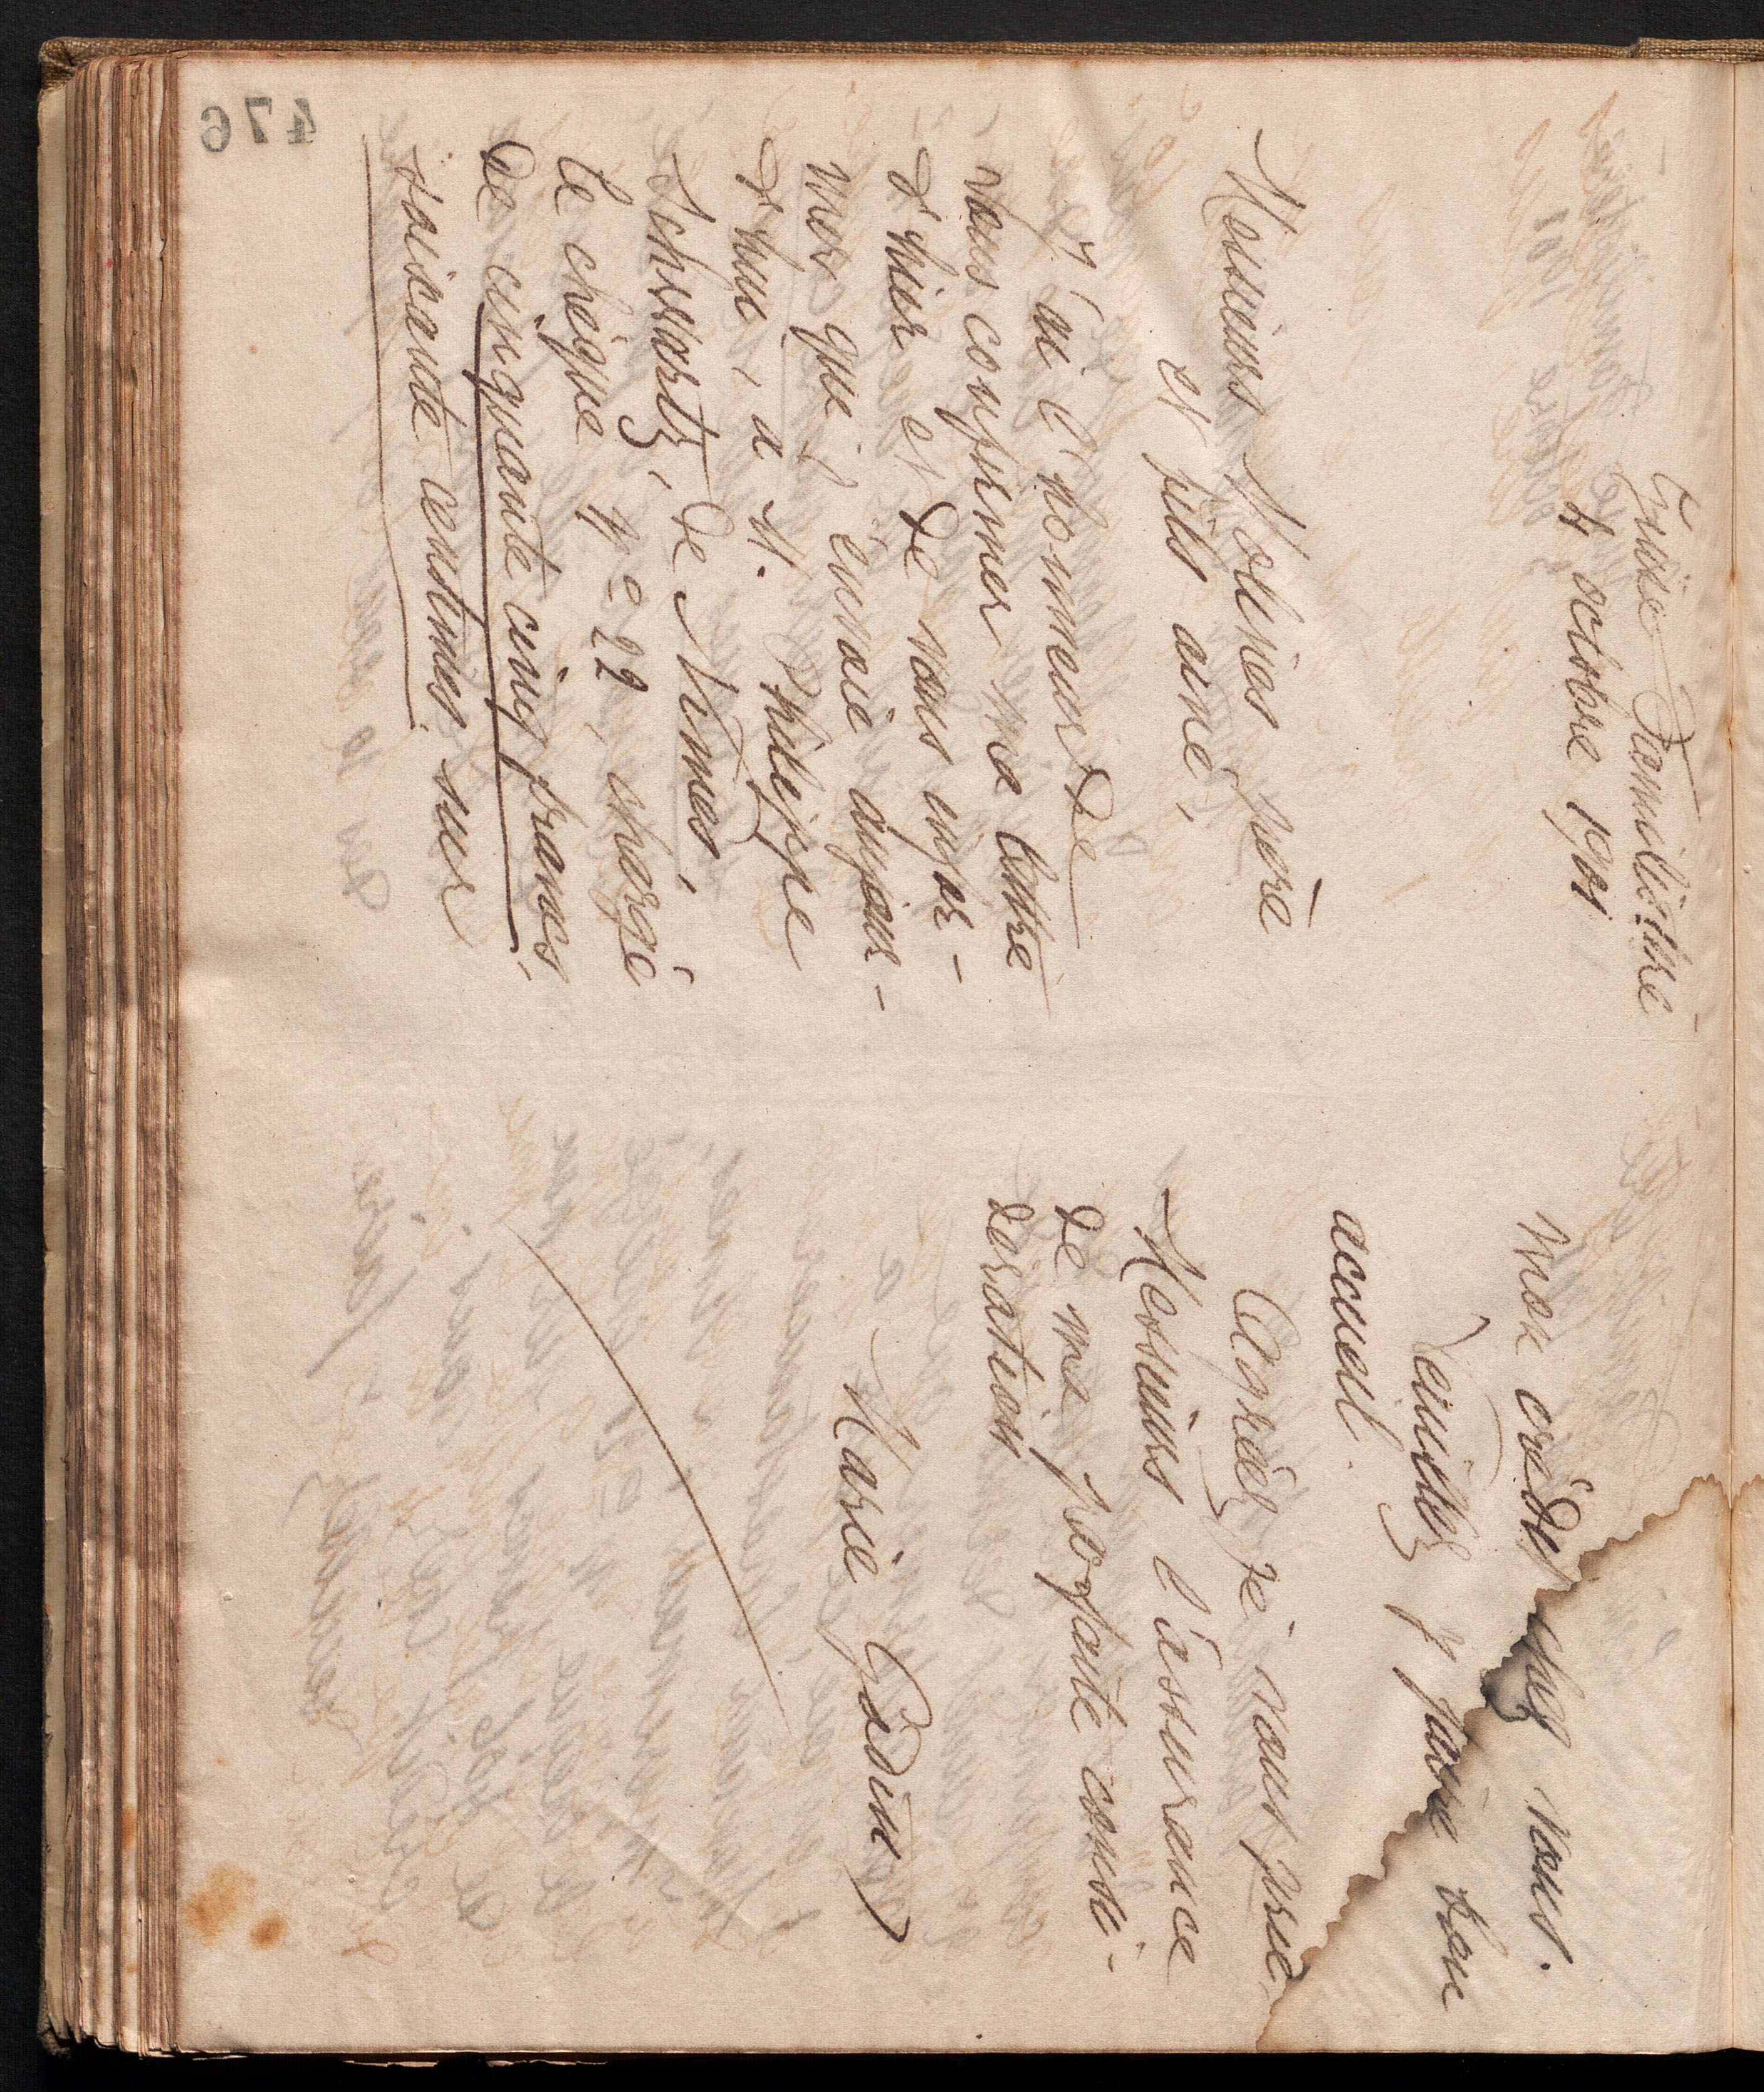 476
Guise Familistère
4 octobre 1901
Messieurs Molines père
et fils ainé,
J'ai l'honneur de
vous confirmer ma lettre
d'hier et de vous infor-
mer que j'envoie aujour-
d'hui, à M. Philippe
Schwartz, de Nimes,
le chèque Nº 22, chargé
de cinquante cinq francs,
soixante centimes sur
mon crédit chez vous.
Veuillez y faire bon
accueil.
Agréez je vous prie
Messieurs l'assurance
de ma parfaite consi-
dération
Marie Godin